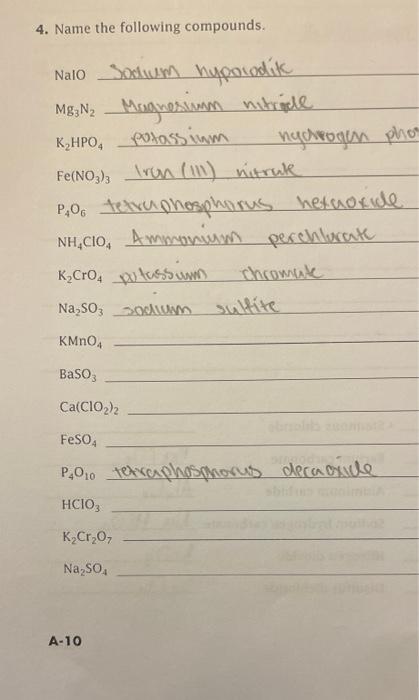 4. Name the following compounds.
NaIO Sodium hypoiodik
Mg₃N₂ Magnesiumm nitride
K₂HPO₄ potassium hydrogen phos
Fe(NO₃)₃ Iron (III) nitrate
P₄O₆ tetraphosphorus hexaoxide
NH₄ClO₄ Ammonium perchlorate
K₂CrO₄ potassium chromate
Na₂SO₃ sodium sulfite
KMnO₄
BaSO₃
Ca(ClO₂)₂
FeSO₄
P₄O₁₀ tetraphosphorus decaoxide
HClO₃
K₂Cr₂O₇
Na₂SO₄
A-10